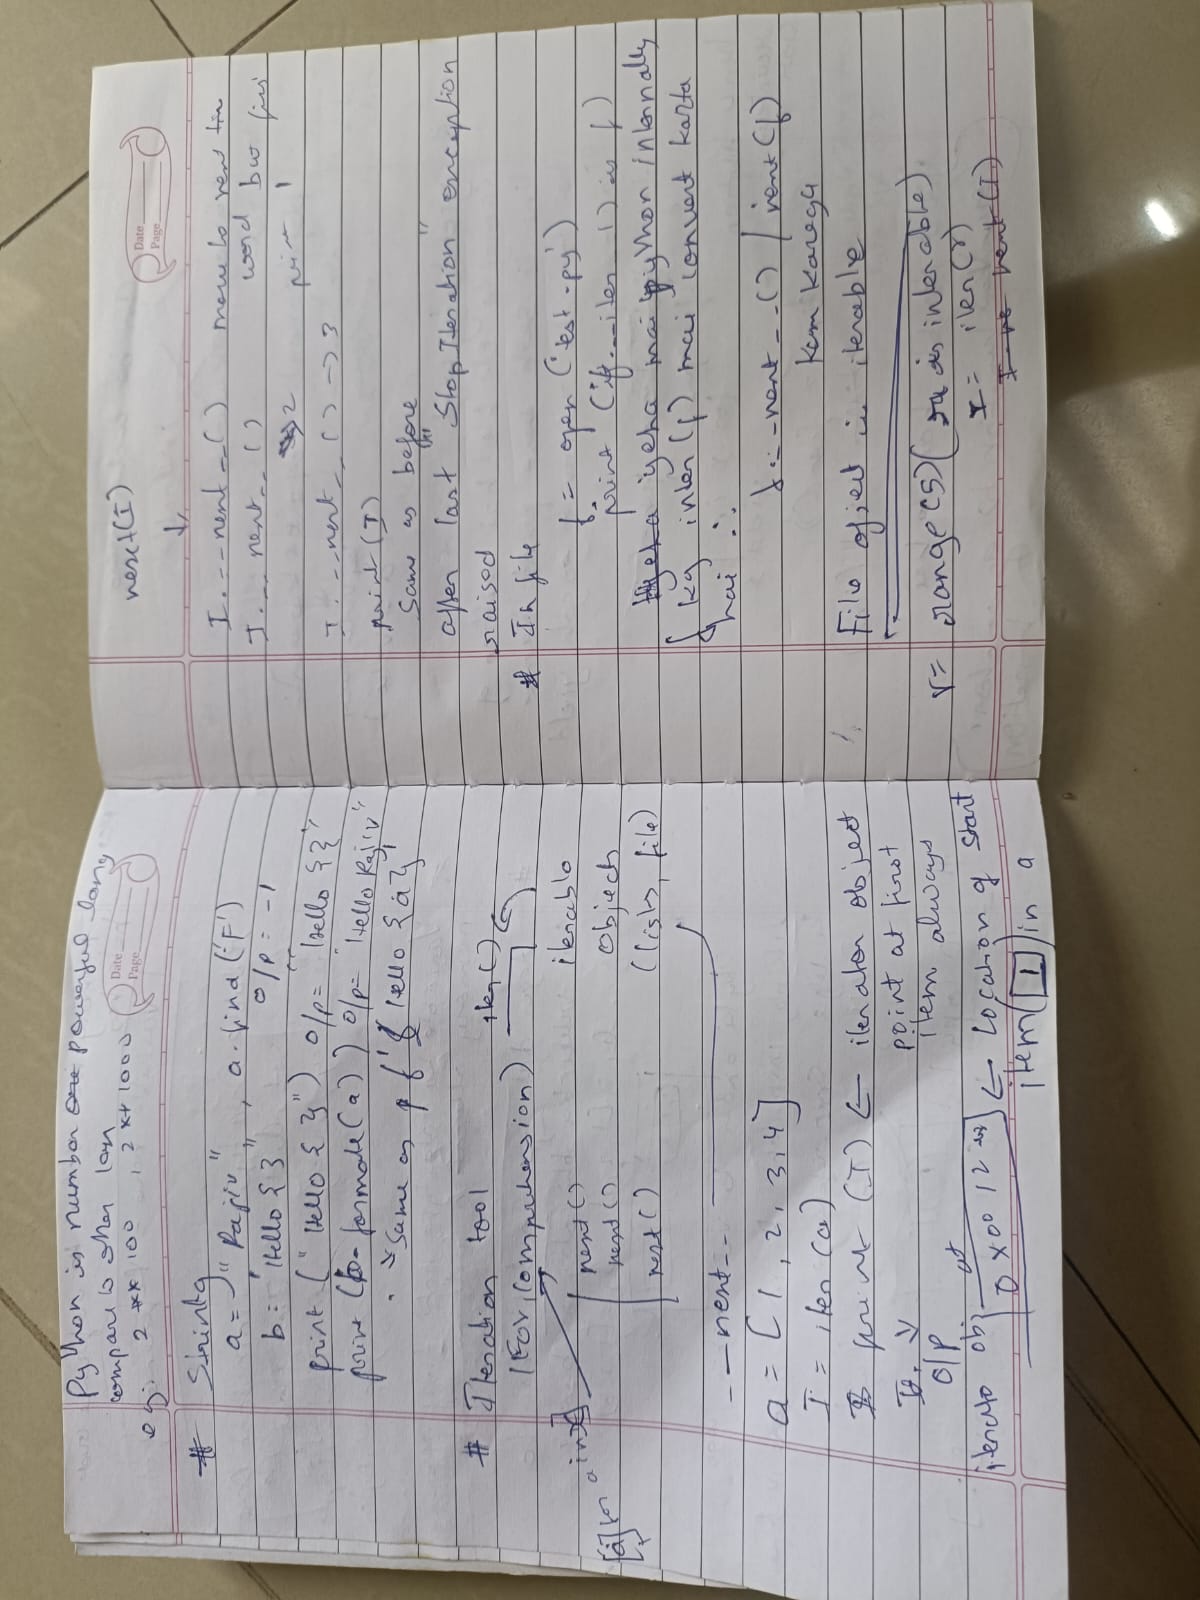 Python is number one powerful lang
compare to other lan
eg. 2 ** 100, 2 ** 1000
Date
Page
# String
a = "Rajiv", a.find('F')
b = "Hello {} o/p = -1
print ("Hello { }") o/p = "Hello {}"
print (b.formate(a)) o/p = "Hello Rajiv"
same as f'Hello {a}'
# Iteration tool iter()
(For, Comprehension)
next() iterable
next() Object
next() (list, file)
__next__
a = [1, 2, 3, 4]
I = iter(a)
print (I) ← iterator object
point at first
item always
O/P
iterato obj at 0x0012 ← Location of start
item(1) in a
Date
Page
next(I)
I.__next__() move to next
I.__next__() word
2 print 1
I.__next__() → 3
print (I)
Same as before
after last "StopIteration" exception
raised
# In file
f = open ('test.py')
print (if iter( ) is f)
yeha mai python internally
kg inter (f) mai convert karta
hai ∴
f.__next__() / next(f)
kam karega
File object is iterable
r = range(5) ( is interable)
I = iter(r)